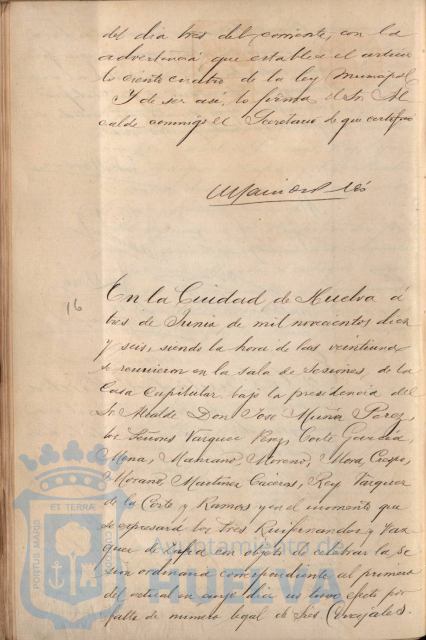 del dia tres del corriente, con la
advertencia que establece el articu
lo ciento cuatro de la ley Municipal.
Y de ser asi, lo firma el Sr. Al
calde conmigo el Secretario de que certifico
16
En la Ciudad de Huelva á
tres de Junio de mil novecientos diez
y seis, siendo la hora de las veintiuna,
se reunieron en la sala de sesiones de la
Casa Capitular bajo la presidencia del
Sr Alcalde Don José Muñoz Perez,
los Señores Vazquez Perez, Corte Garcia,
Mena, Manzano, Moreno, Mora, Crespo,
Morano, Martinez Caceres, Rey Vazquez
de la Corte y Ramos y en el momento que
se expresará los Sres Ruifernandez y Vaz
quez de Zafra en objeto de celebrar la Se
sion ordinaria correspondiente al primero
del actual en cuyo dia no tuvo efecto por
falta de numero legal de Sres Concejales.
PORTUS MARIS ET TERRAE CUSTODIA
Ayuntamiento de
HUELVA